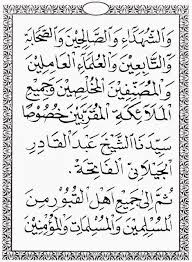 وَالشُّهَدَاءِ وَالصَّالِحِيْنَ وَالصَّحَابَةِ
وَالتَّابِعِيْنَ وَالْعُلَمَاءِ الْعَامِلِيْنَ
وَالْمُصَنِّفِيْنَ الْمُخْلِصِيْنَ وَجَمِيْعِ
الْمَلَائِكَةِ الْمُقَرَّبِيْنَ خُصُوْصًا
سَيِّدَنَا الشَّيْخَ عَبْدَ الْقَادِرِ
الْجَيْلَانِي الْفَاتِحَةْ.
ثُمَّ اِلَى جَمِيْعِ اَهْلِ الْقُبُوْرِ مِنَ
الْمُسْلِمِيْنَ وَالْمُسْلِمَاتِ وَالْمُؤْمِنِيْنَ